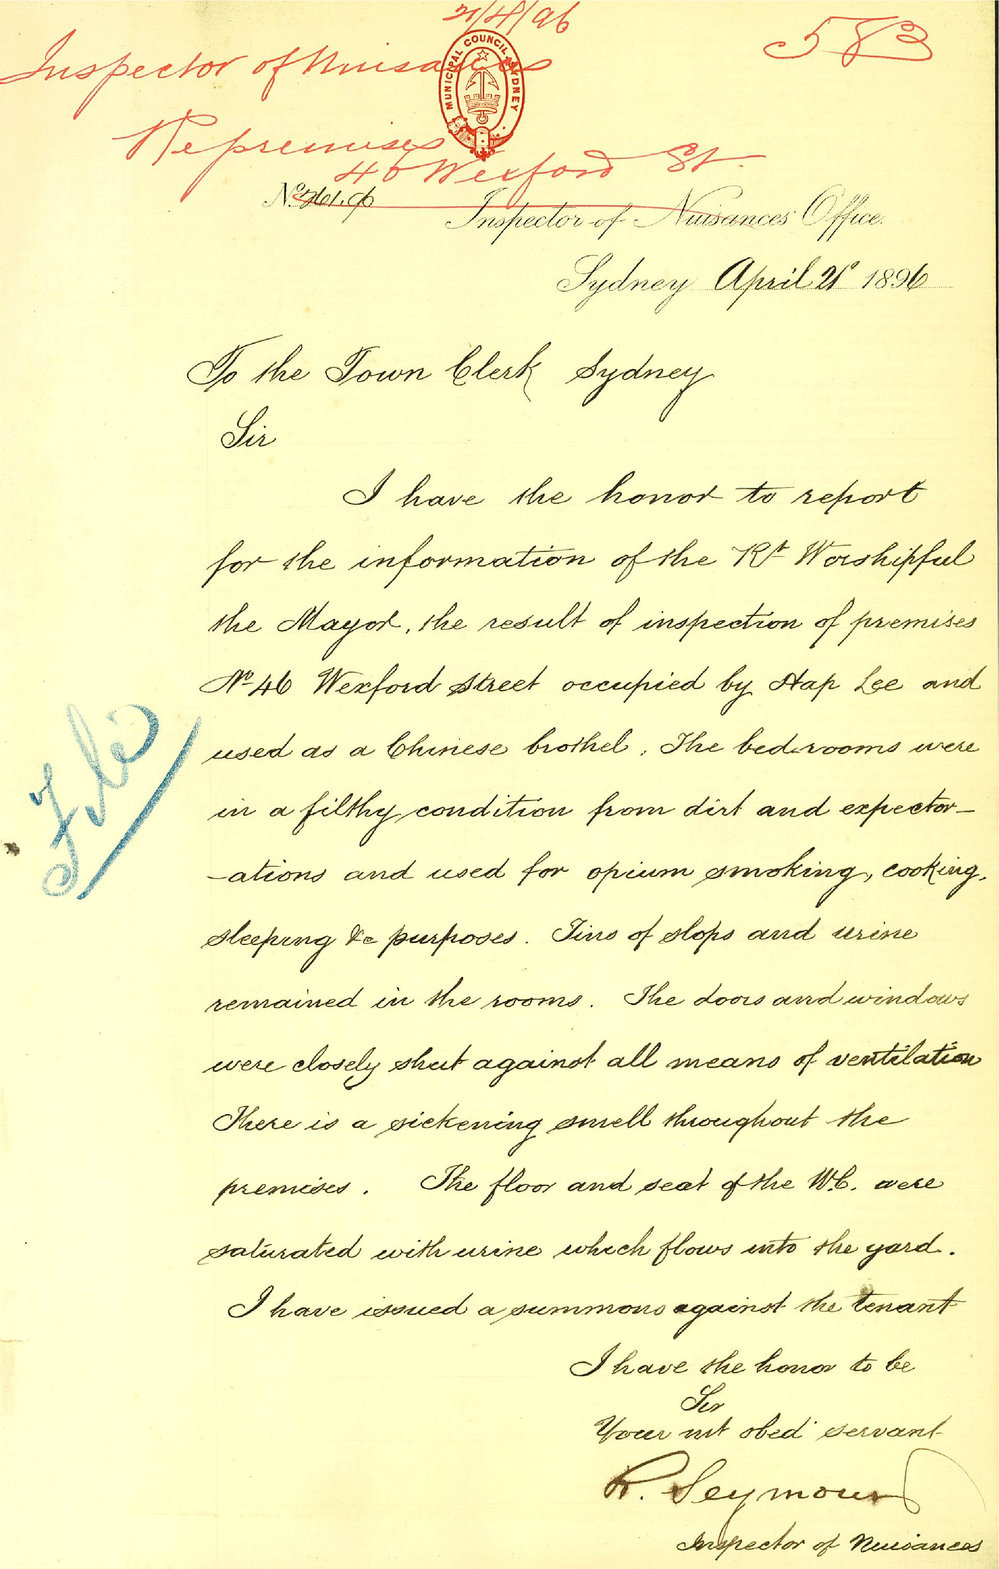 21/4/96
583
Inspector of Nuisances
Re premises
46 Wexford St.
MUNICIPAL COUNCIL SYDNEY
No. 961.96
Inspector of Nuisances' Office.
Sydney April 21st 1896
To the Town Clerk Sydney
Sir
I have the honor to report
for the information of the Rt Worshipful
the Mayor, the result of inspection of premises
No 46 Wexford Street occupied by Hap Lee and
used as a Chinese brothel. The bedrooms were
in a filthy condition from dirt and expector-
-ations and used for opium smoking, cooking,
sleeping &c purposes. Tins of slops and urine
remained in the rooms. The doors and windows
were closely shut against all means of ventilation
There is a sickening smell throughout the
premises. The floor and seat of the W.C. were
saturated with urine which flows into the yard.
I have issued a summons against the tenant
I have the honor to be
Sir
Your mt obed servant
R. Seymour
Inspector of Nuisances
File